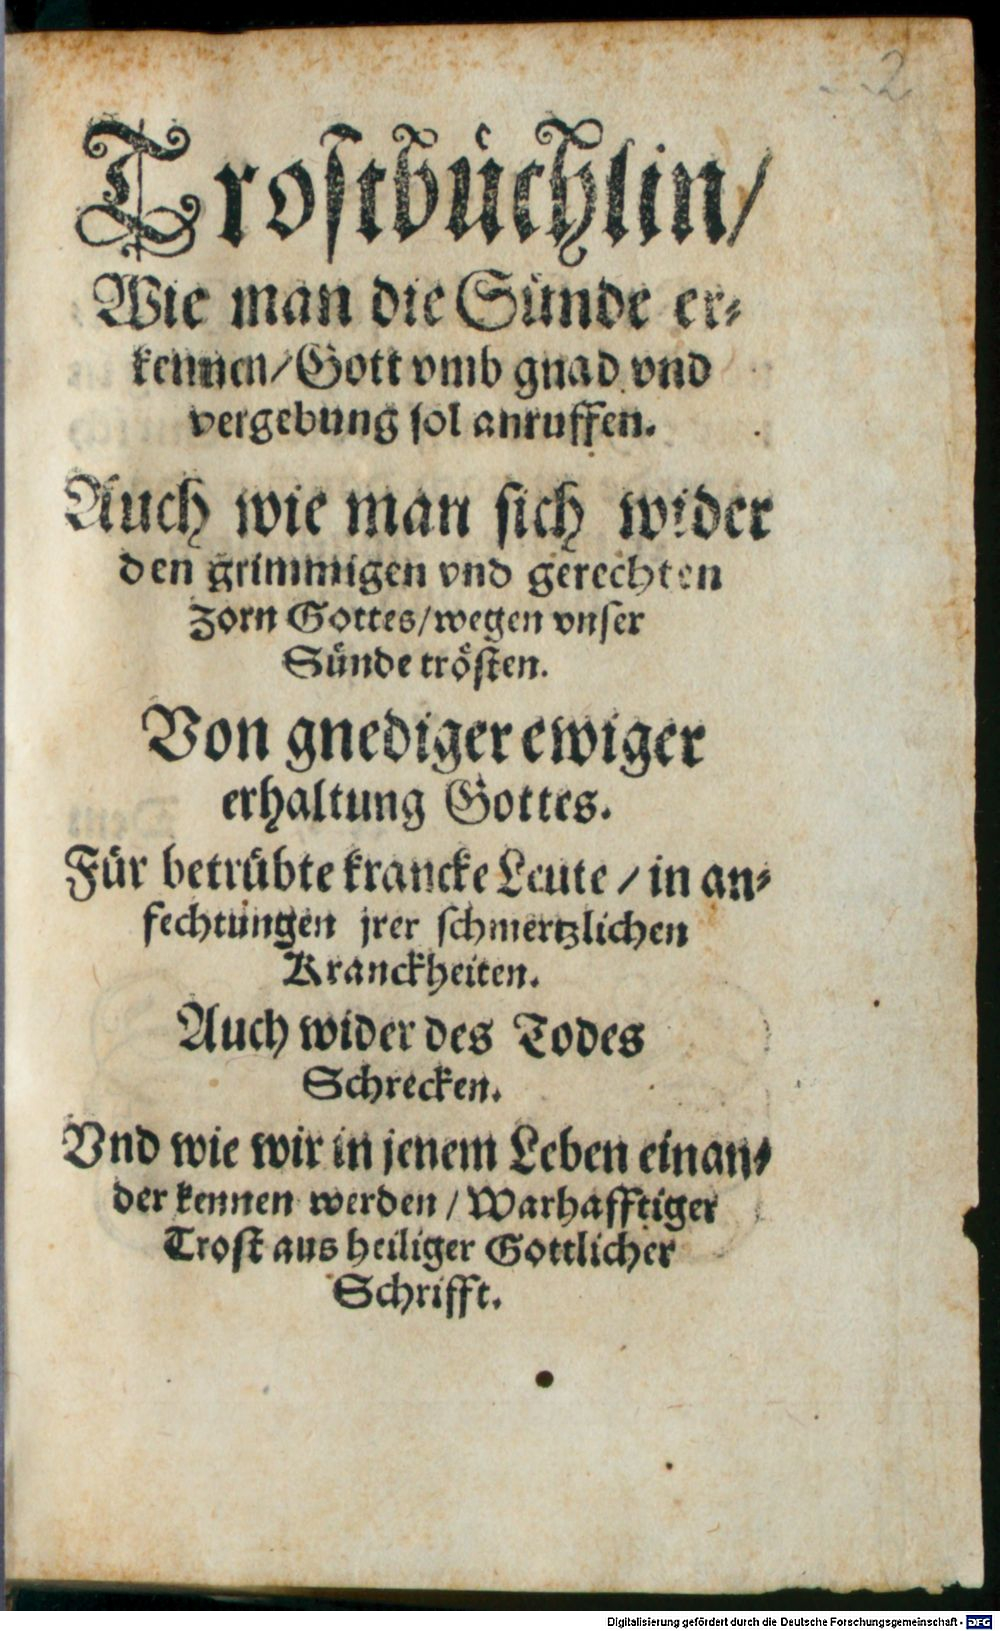 2
Trostbüchlin/
Wie man die Sünde er⸗
kennen/Gott vmb gnad vnd
vergebung sol anruffen.
Auch wie man sich wider
den grimmigen vnd gerechten
zorn Gottes/wegen vnser
Sünde trösten.
Von gnediger ewiger
erhaltung Gottes.
Für betrübte krancke Leute / in an⸗
fechtungen jrer schmertzlichen
Kranckheiten.
Auch wider des Todes
Schrecken.
Vnd wie wir in jenem Leben einan⸗
der kennen werden / Warhafftiger
Trost aus heiliger Gottlicher
Schrifft.
Digitalisierung gefördert durch die Deutsche Forschungsgemeinschaft - DFG